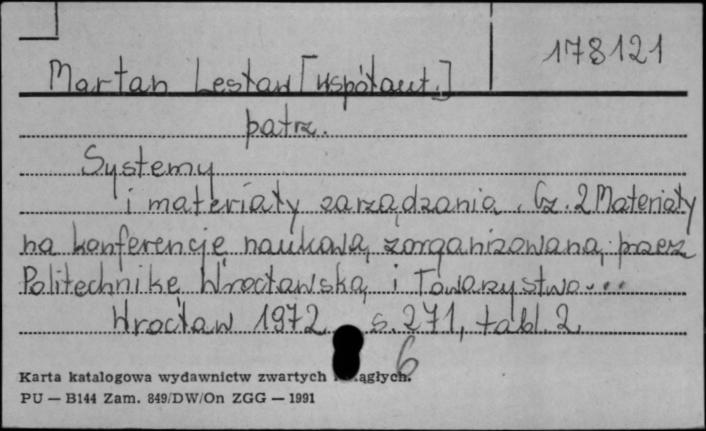 178121
Martan Lesław [współaut.]
patrz.
Systemy
i materiały zarządzania. Cz. 2 Materiały
na konferencję naukową zorganizowaną przez
Politechnikę Wrocławską i Towarzystwo...
Wrocław 1972 s. 271, tabl. 2
6
Karta katalogowa wydawnictw zwartych ągłych.
PU — B144 Zam. 849/DW/On ZGG — 1991